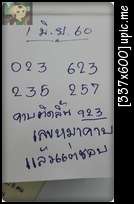 1 มิ.ย. 60
023 623
235 257
คาบติดลิ้น 923
เลขหมาคาบ
แล้วแต่ชอบ
[337x600]upic.me